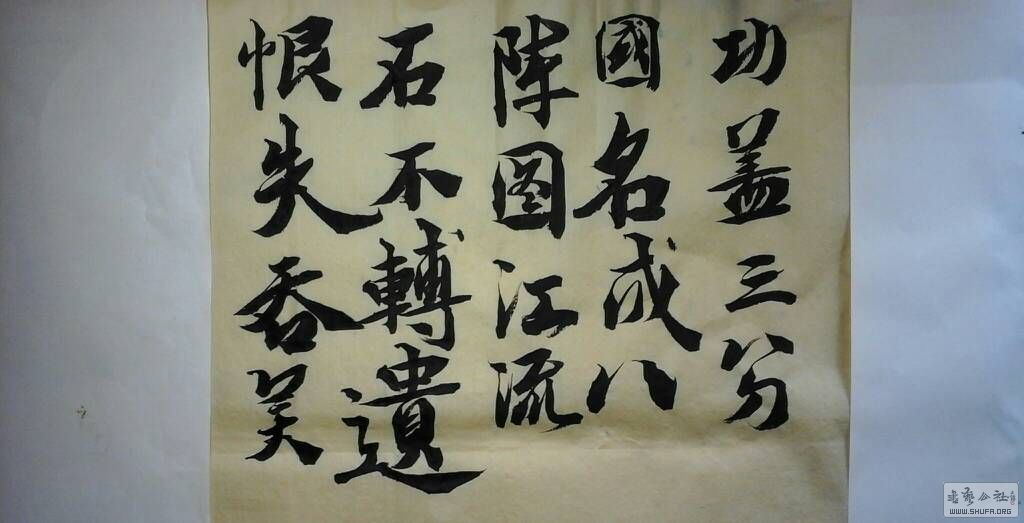 功盖三分
國名成八
陣图江流
石不轉遺
恨失吞吴
WWW.SHUFA.ORG